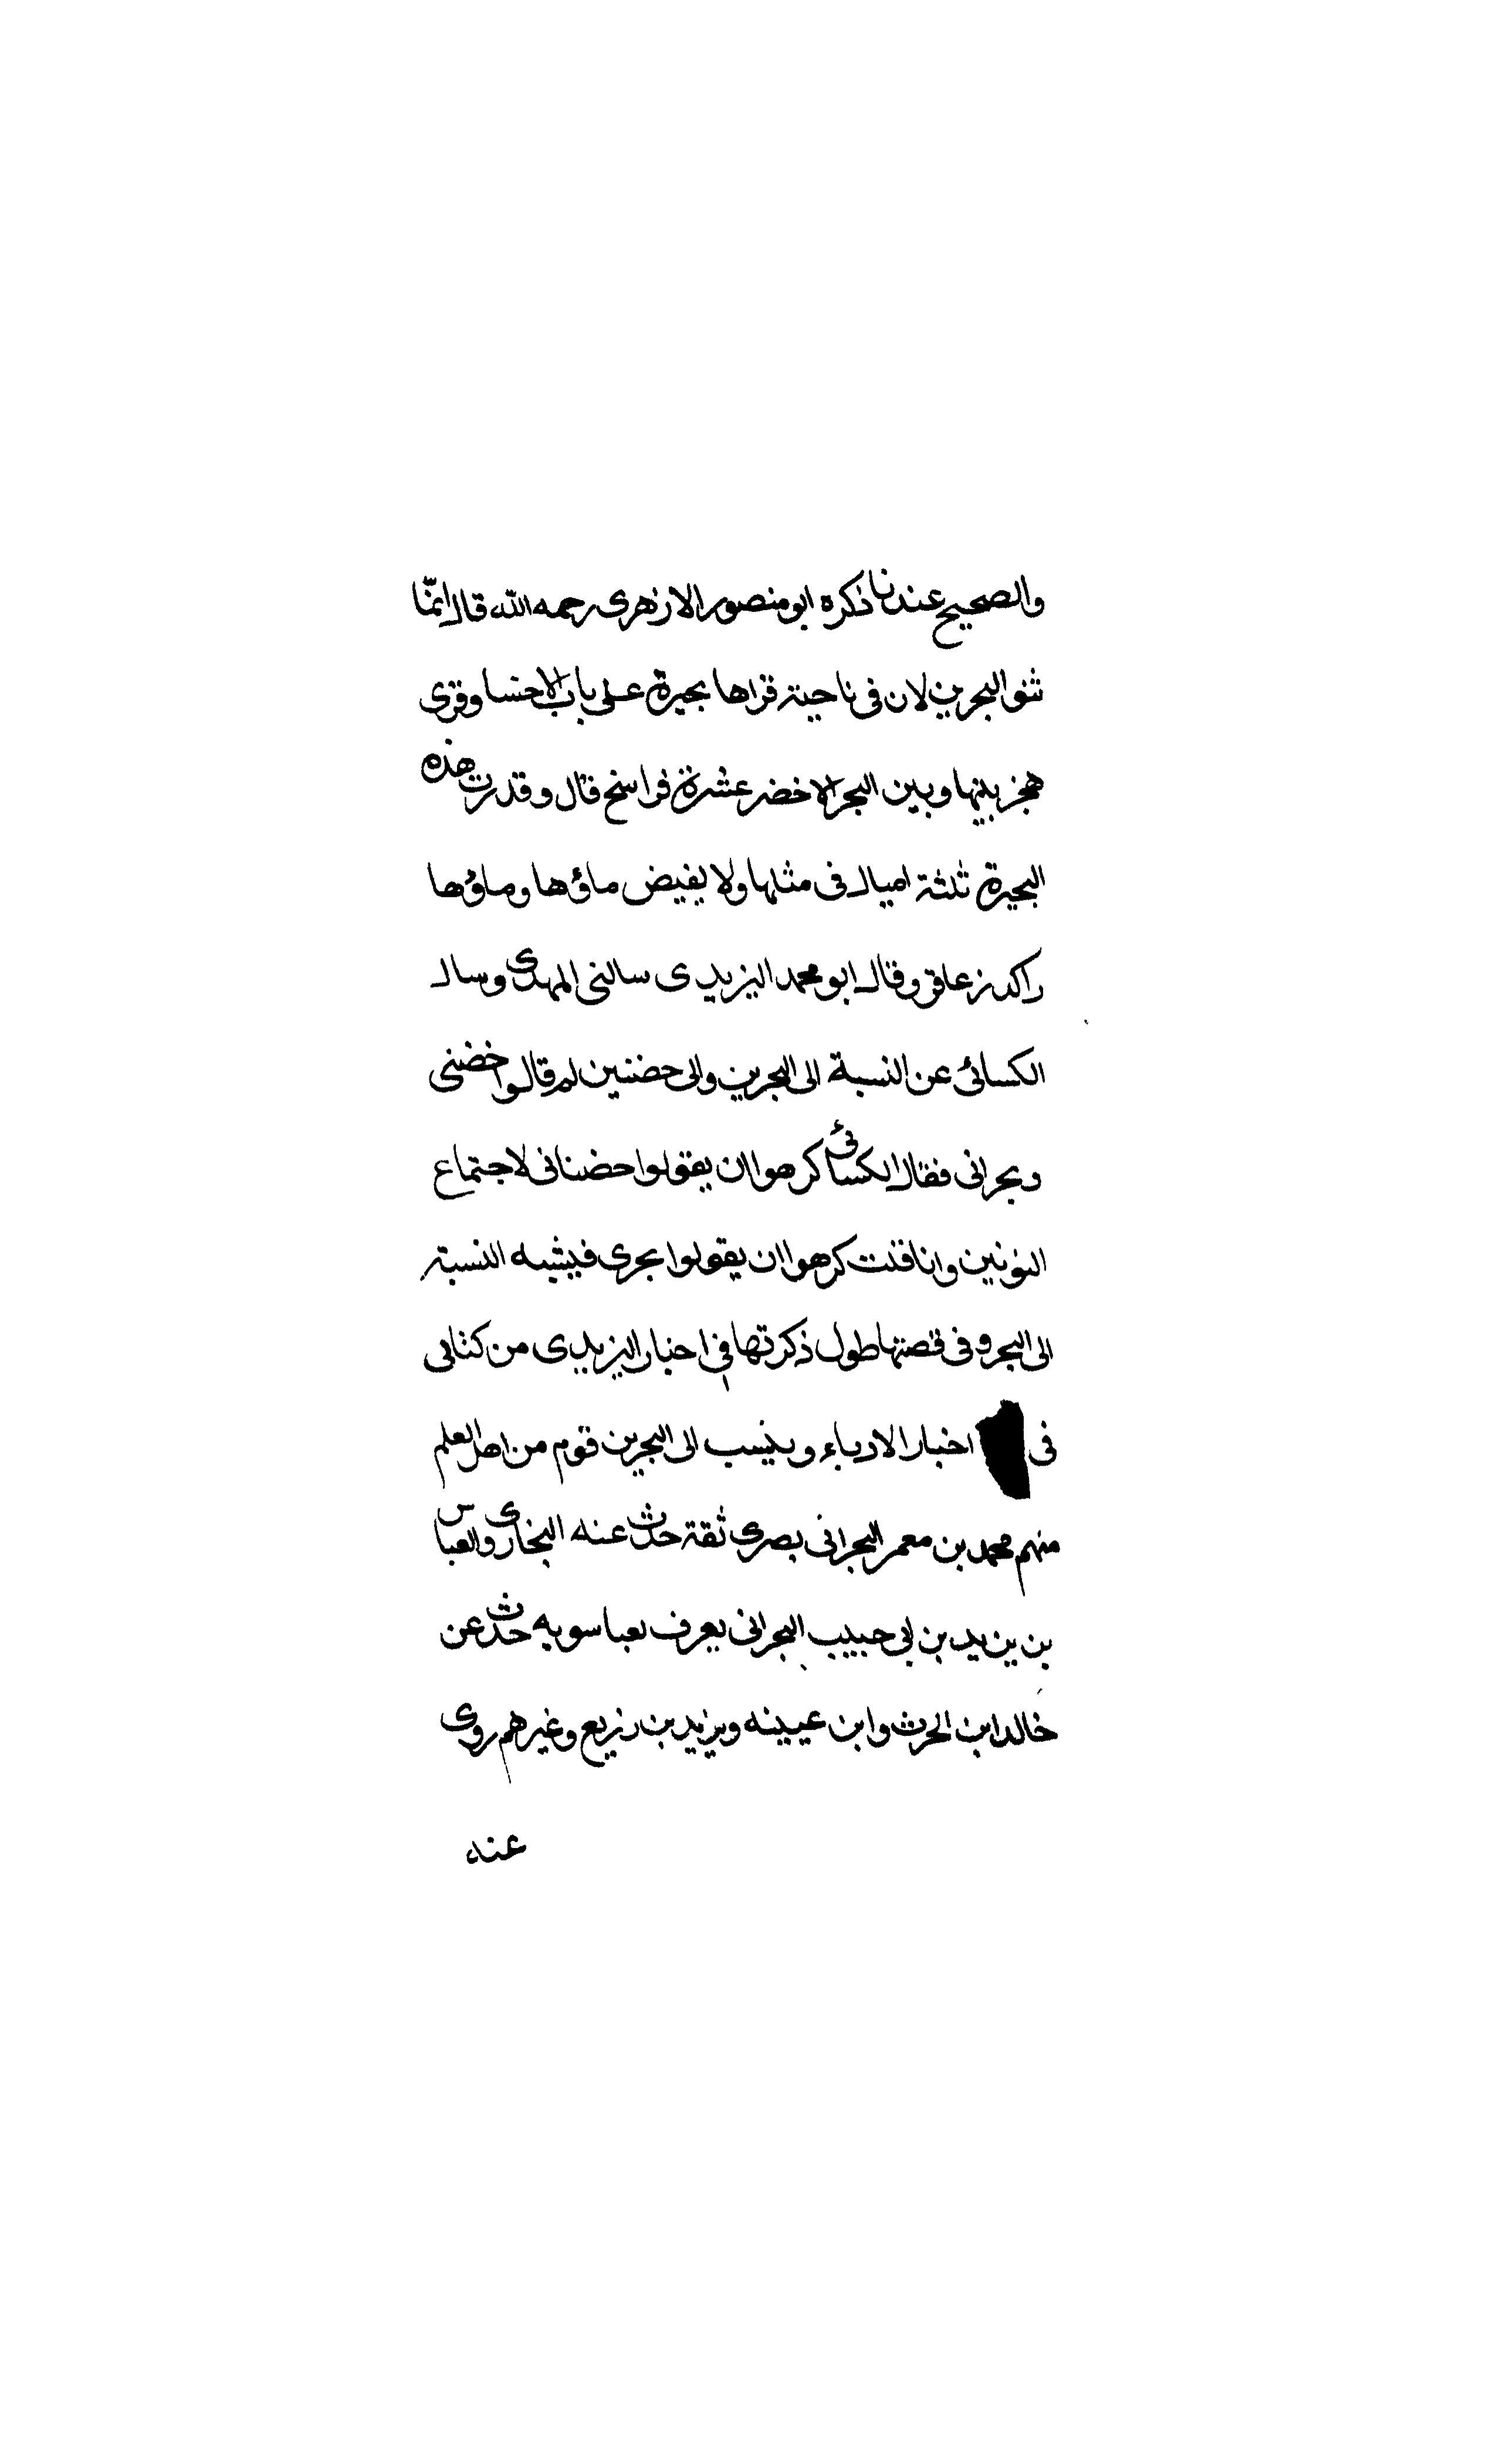 والصحيح عندنا ذكره ابو منصور الازهرى رحمه الله قال انما
ثنو البحرين لان فى ناحية قراها بحيرة على باب الاحسا وقرى
هجر بينها وبين البحر الاخضر عشرة فراسخ قال وقدرت هذه
البحيرة ثلثة اميال فى مثلها ولا يفيض ماؤها وماؤها
راكد زعاق وقال ابو محمد اليزيدى سالنى المهدى وسال
الكسائى عن النسبة الى البحرين والى حضنين لم قالوا حضنى
وبحرانى فقال الكسائى كرهوا ان يقولوا حضنانى لاجتماع
النونين وانا قلت كرهوا ان يقولوا بحرى فيشبه النسبة
الى البحر وفى قصتها طول ذكرتها فى اخبار اليزيدى من كتابى
فى اخبار الادباء وينسب الى البحرين قوم من اهل العلم
منهم محمد بن معمر البحرانى بصرى ثقة حدث عنه البخارى والعباس
بن يزيد بن ابى حبيب البحرانى يعرف بعباسويه حدث عن
خالد ابن الحرث وابن عيينه ويزيد بن زريع وغيرهم روى
عنه